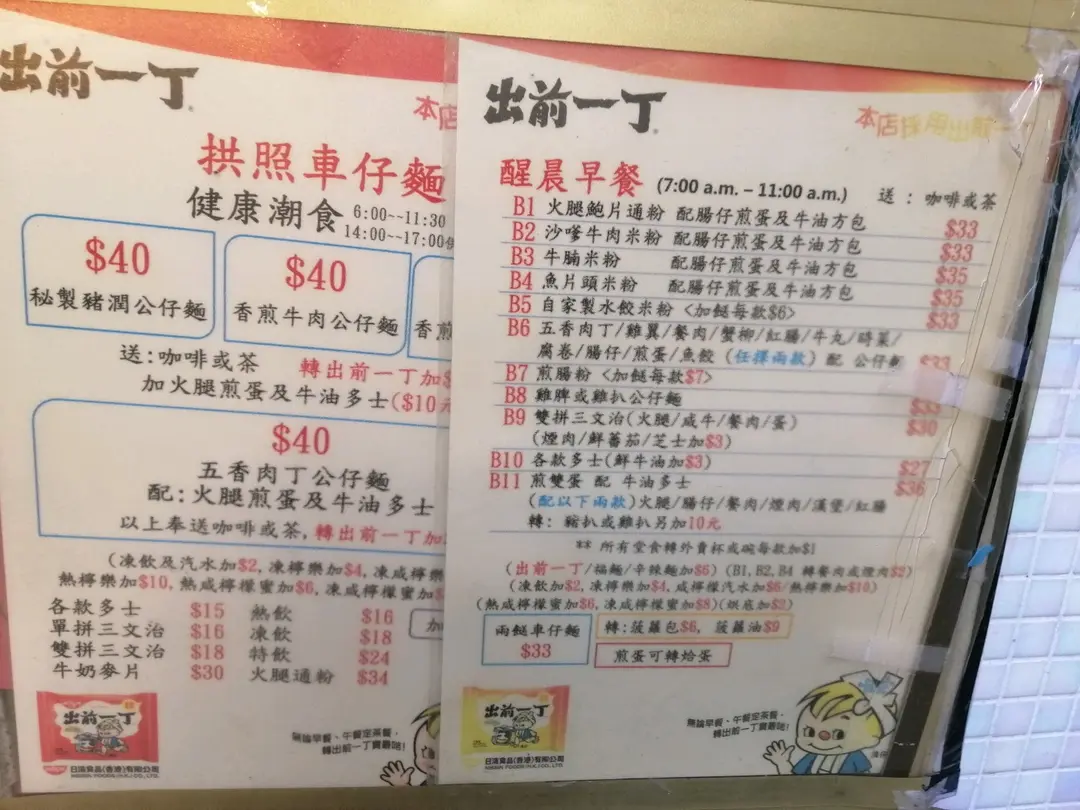 出前一丁
本店
拱照車仔麵
健康潮食
6:00~~11:30
14:00~~17:00
$40
秘製豬潤公仔麵
$40
香煎牛肉公仔麵
香煎
送:咖啡或茶
轉出前一丁加$
加火腿煎蛋及牛油多士($10元
$40
五香肉丁公仔麵
配:火腿煎蛋及牛油多士
以上奉送咖啡或茶,轉出前一丁加
(凍飲及汽水加$2,凍檸樂加$4,凍咸檸樂
熱檸樂加$10,熱咸檸檬蜜加$6,凍咸檸檬蜜加$
各款多士 $15 熱飲 $16
單拼三文治 $16 凍飲 $18
雙拼三文治 $18 特飲 $24
牛奶麥片 $30 火腿通粉 $34
加
出前一丁
無論早餐、午餐定茶餐,
轉出前一丁實最啱!
日清食品(香港)有限公司
NISSIN FOODS (H.K.) CO., LTD.
出前一丁
本店採用出前一
醒晨早餐 (7:00 a.m. – 11:00 a.m.) 送 : 咖啡或茶
B1 火腿鮑片通粉 配腸仔煎蛋及牛油方包 $33
B2 沙嗲牛肉米粉 配腸仔煎蛋及牛油方包 $33
B3 牛腩米粉 配腸仔煎蛋及牛油方包 $35
B4 魚片頭米粉 配腸仔煎蛋及牛油方包 $35
B5 自家製水餃米粉 <加餸每款$6> $33
B6 五香肉丁/雞翼/餐肉/蟹柳/紅腸/牛丸/時菜/
腐卷/腸仔/煎蛋/魚餃 (任擇兩款) 配 公仔麵 $33
B7 煎腸粉 <加餸每款$7>
B8 雞脾或雞扒公仔麵 $33
B9 雙拼三文治(火腿/咸牛/餐肉/蛋) $30
(煙肉/鮮蕃茄/芝士加$3)
B10 各款多士(鮮牛油加$3) $27
B11 煎雙蛋 配 牛油多士 $36
(配以下兩款)火腿/腸仔/餐肉/煙肉/漢堡/紅腸
轉: 豬扒或雞扒另加10元
** 所有堂食轉外賣杯或碗每款加$1
(出前一丁/福麵/辛辣麵加$6) (B1,B2,B4 轉餐肉或煙肉$2)
(凍飲加$2,凍檸樂加$4,咸檸檬汽水加$6/熱檸樂加$10)
(熱咸檸檬蜜加$6,凍咸檸檬蜜加$8)(烘底加$2)
兩餸車仔麵
$33
轉:菠蘿包$6, 菠蘿油$9
煎蛋可轉烚蛋
出前一丁
無論早餐、午餐定茶餐,
轉出前一丁實最啱!
日清食品(香港)有限公司
NISSIN FOODS (H.K.) CO., LTD.